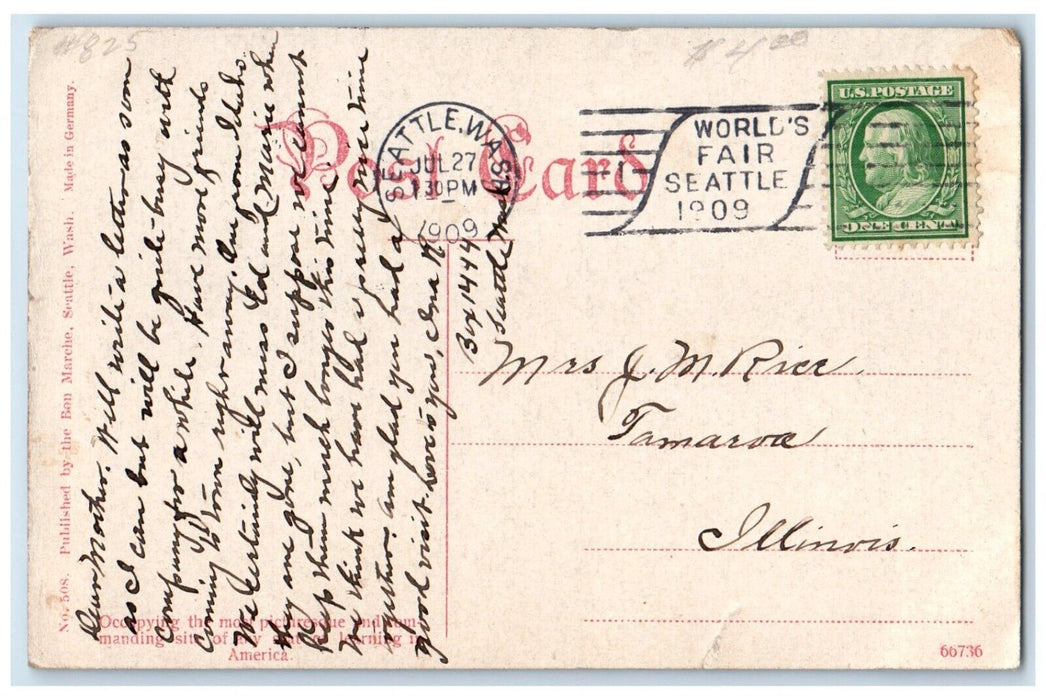 #825
$4.00
Post Card
SEATTLE, WASH.
JUL 27
1 30 PM
1909
WORLD'S
FAIR
SEATTLE
1909
U.S. POSTAGE
ONE CENT
No. 508. Published by the Bon Marche, Seattle, Wash. Made in Germany.
Dear Mother. Will write a letter as soon
as I can but will be quite busy with
company for a while. Have more friends
coming to town right away. One from Idaho.
We certainly will miss Ed and Marie when
they are gone, but I suppose we cannot
keep them much longer this time.
We think we have had a pretty nice time
together. am glad you had a
good visit
Box 1444
Seattle
Mrs J. M. Rice.
Tamaroa
Illinois.
Occupying the most picturesque and com-
manding site of any seat of learning in
America.
66736